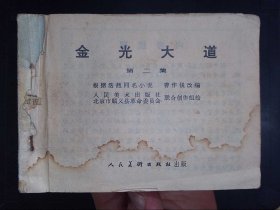 金光大道
第二集
根据浩然同名小说 曹作锐改编
人民美术出版社
北京市顺义县革命委员会 联合创作组绘
人民美术出版社出版